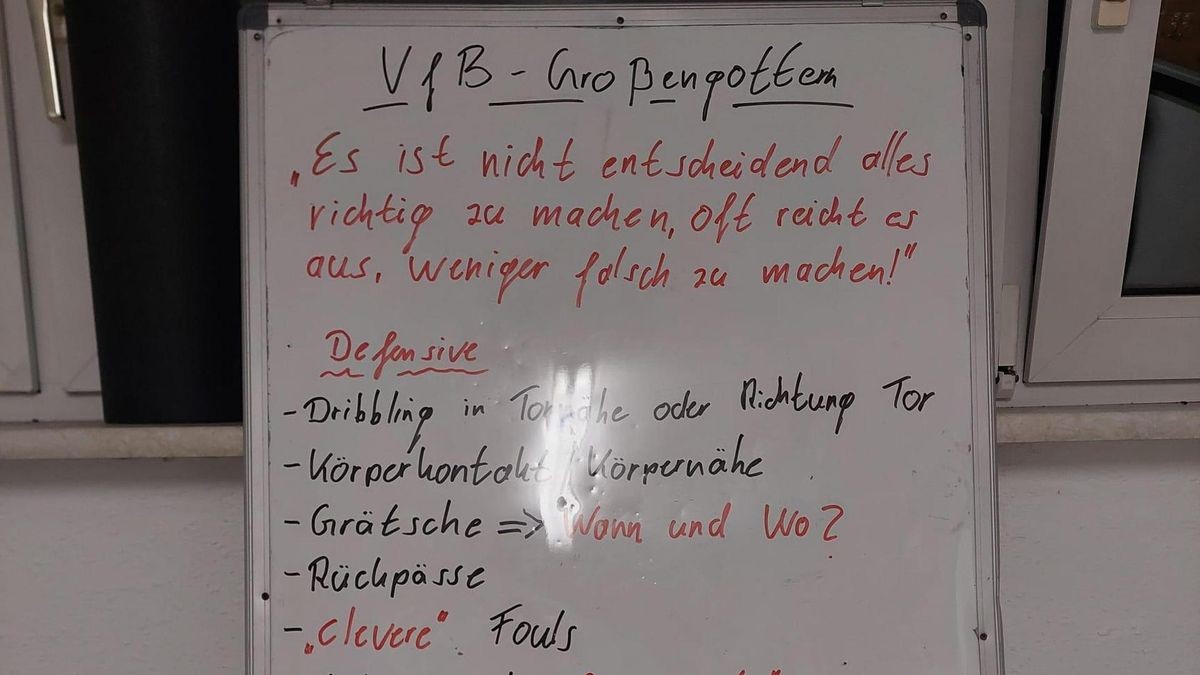 VfB - Großengottern
„Es ist nicht entscheidend alles
richtig zu machen, oft reicht es
aus, weniger falsch zu machen!"
Defensive
- Dribbling in Tornähe oder Richtung Tor
- Körperkontakt / Körpernähe
- Grätsche => Wann und Wo?
- Rückpässe
- „clevere" Fouls